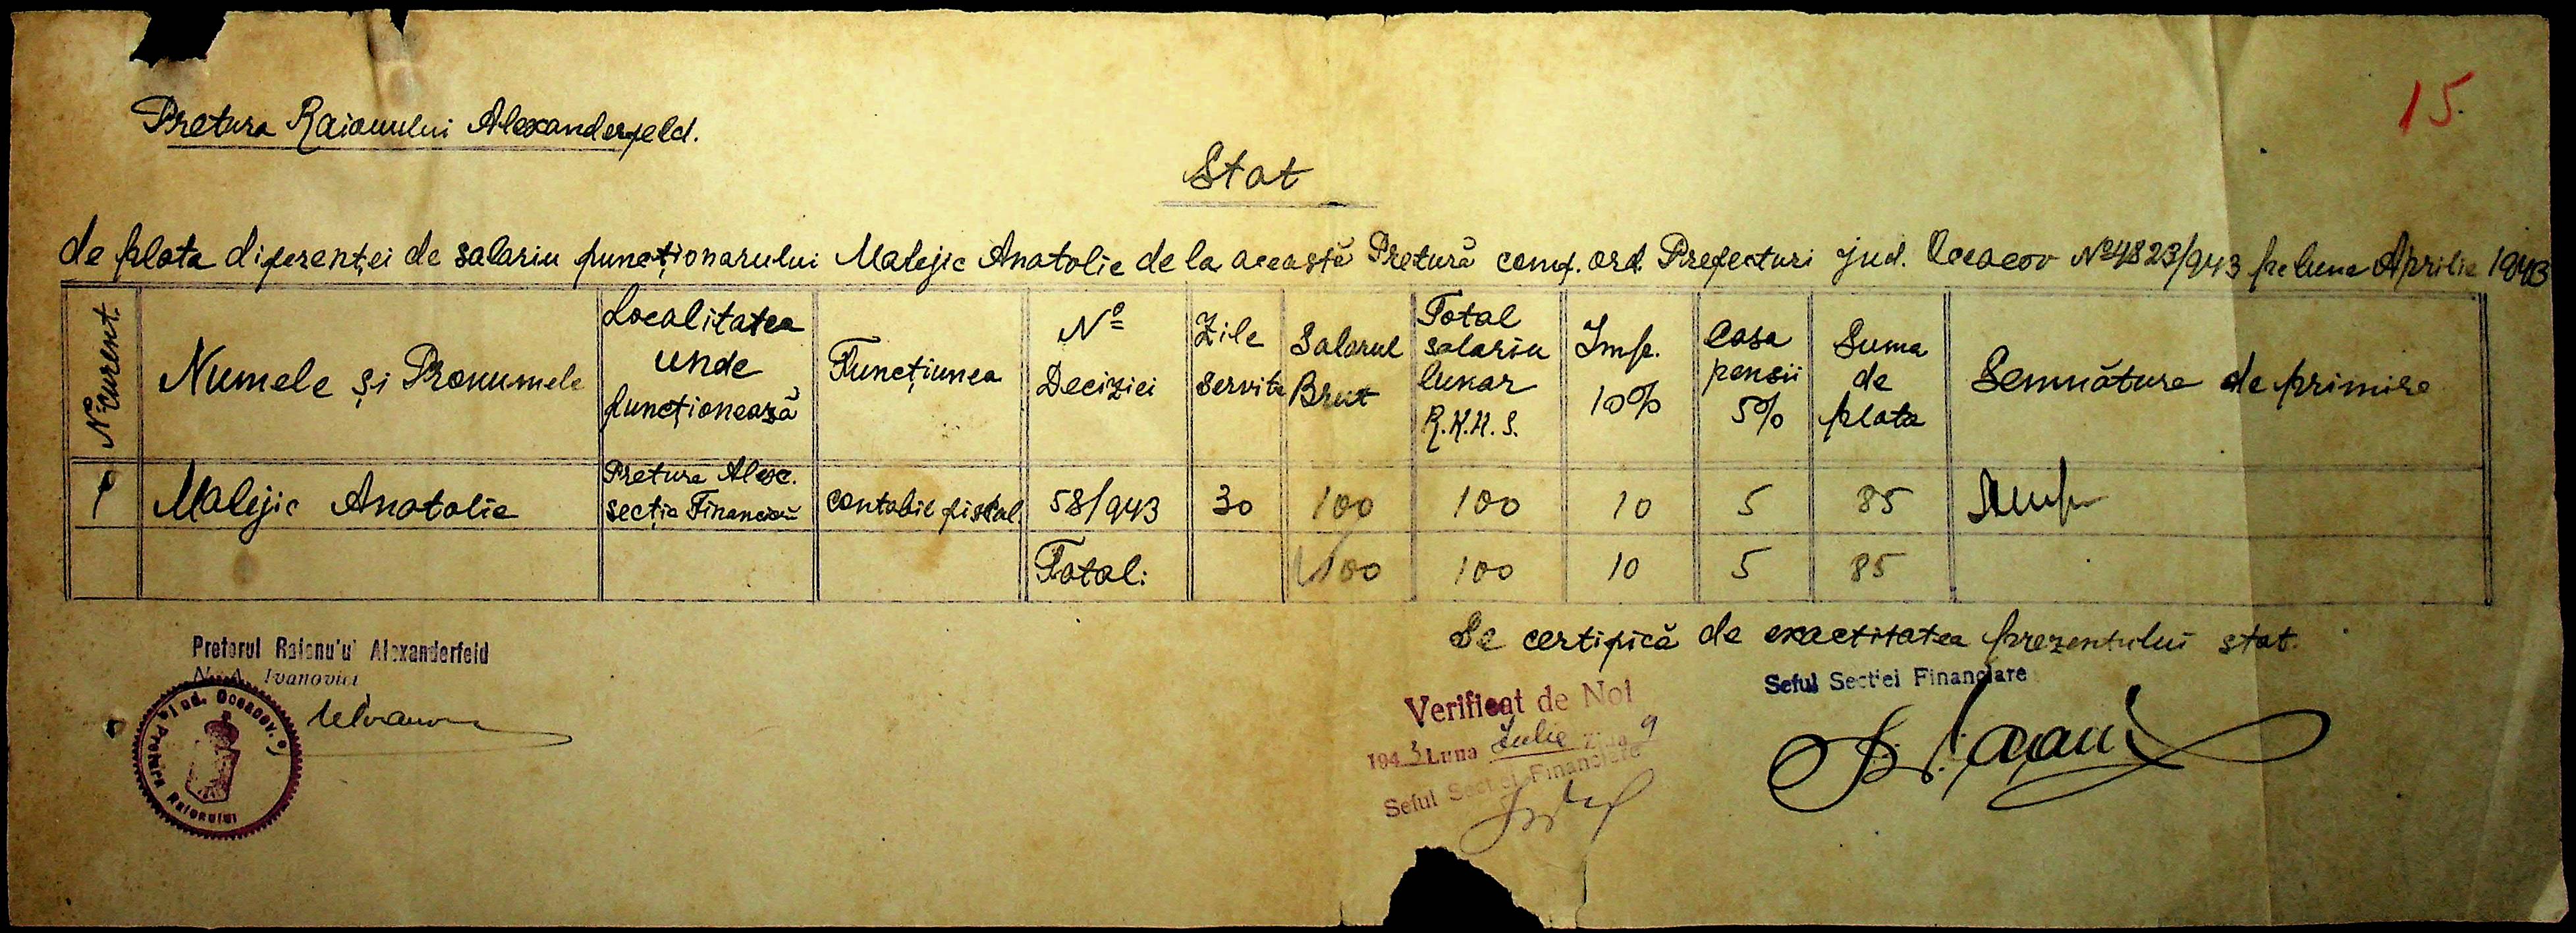 15.
Pretura Raionului Alexanderfeld.
Stat
de plata diferenței de salariu funcționarului Malejic Anatolie de la această Pretură conf. ord. Prefecturi jud. Oceacov Nº 4823/943 pe luna Aprilie 1943
Nº curent. Numele și Pronumele Localitatea unde funcționează Funcțiunea Nº Deciziei Zile servite Salarul Brut Total salariu lunar R.K.K.S. Imp. 10% Casa pensii 5% Suma de plata Semnătura de primire
1 Malejic Anatolie Pretura Alex. secția Financiară contabil fiscal. 58/943 30 100 100 10 5 85
Total: 100 100 10 5 85
Se certifică de exactitatea prezentului stat.
Pretorul Raionului Alexanderfeld
Ivanovici
Jud. Oceacov Pretura Raionului
Verificat de Noi
1943 Luna Iulie Ziua 9
Seful Sectiei Financiare
Seful Sectiei Financiare